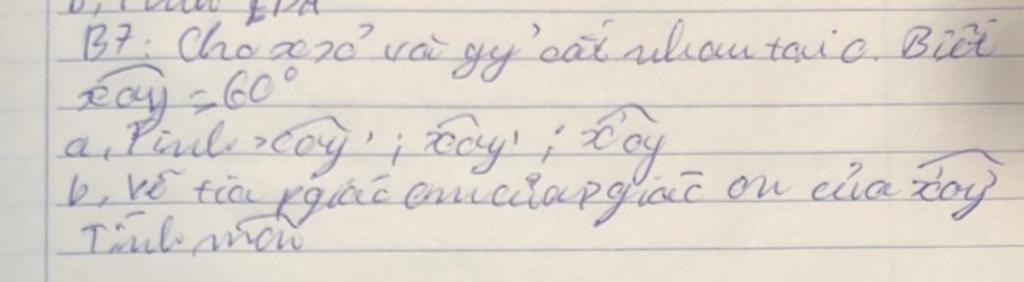 B7: Cho xx' và yy' cắt nhau tại O. Biết
xoy = 60°
a, Tính xoy'; x'oy'; x'oy
b, vẽ tia pgiác om của pgiác on của x'oy
Tính mon